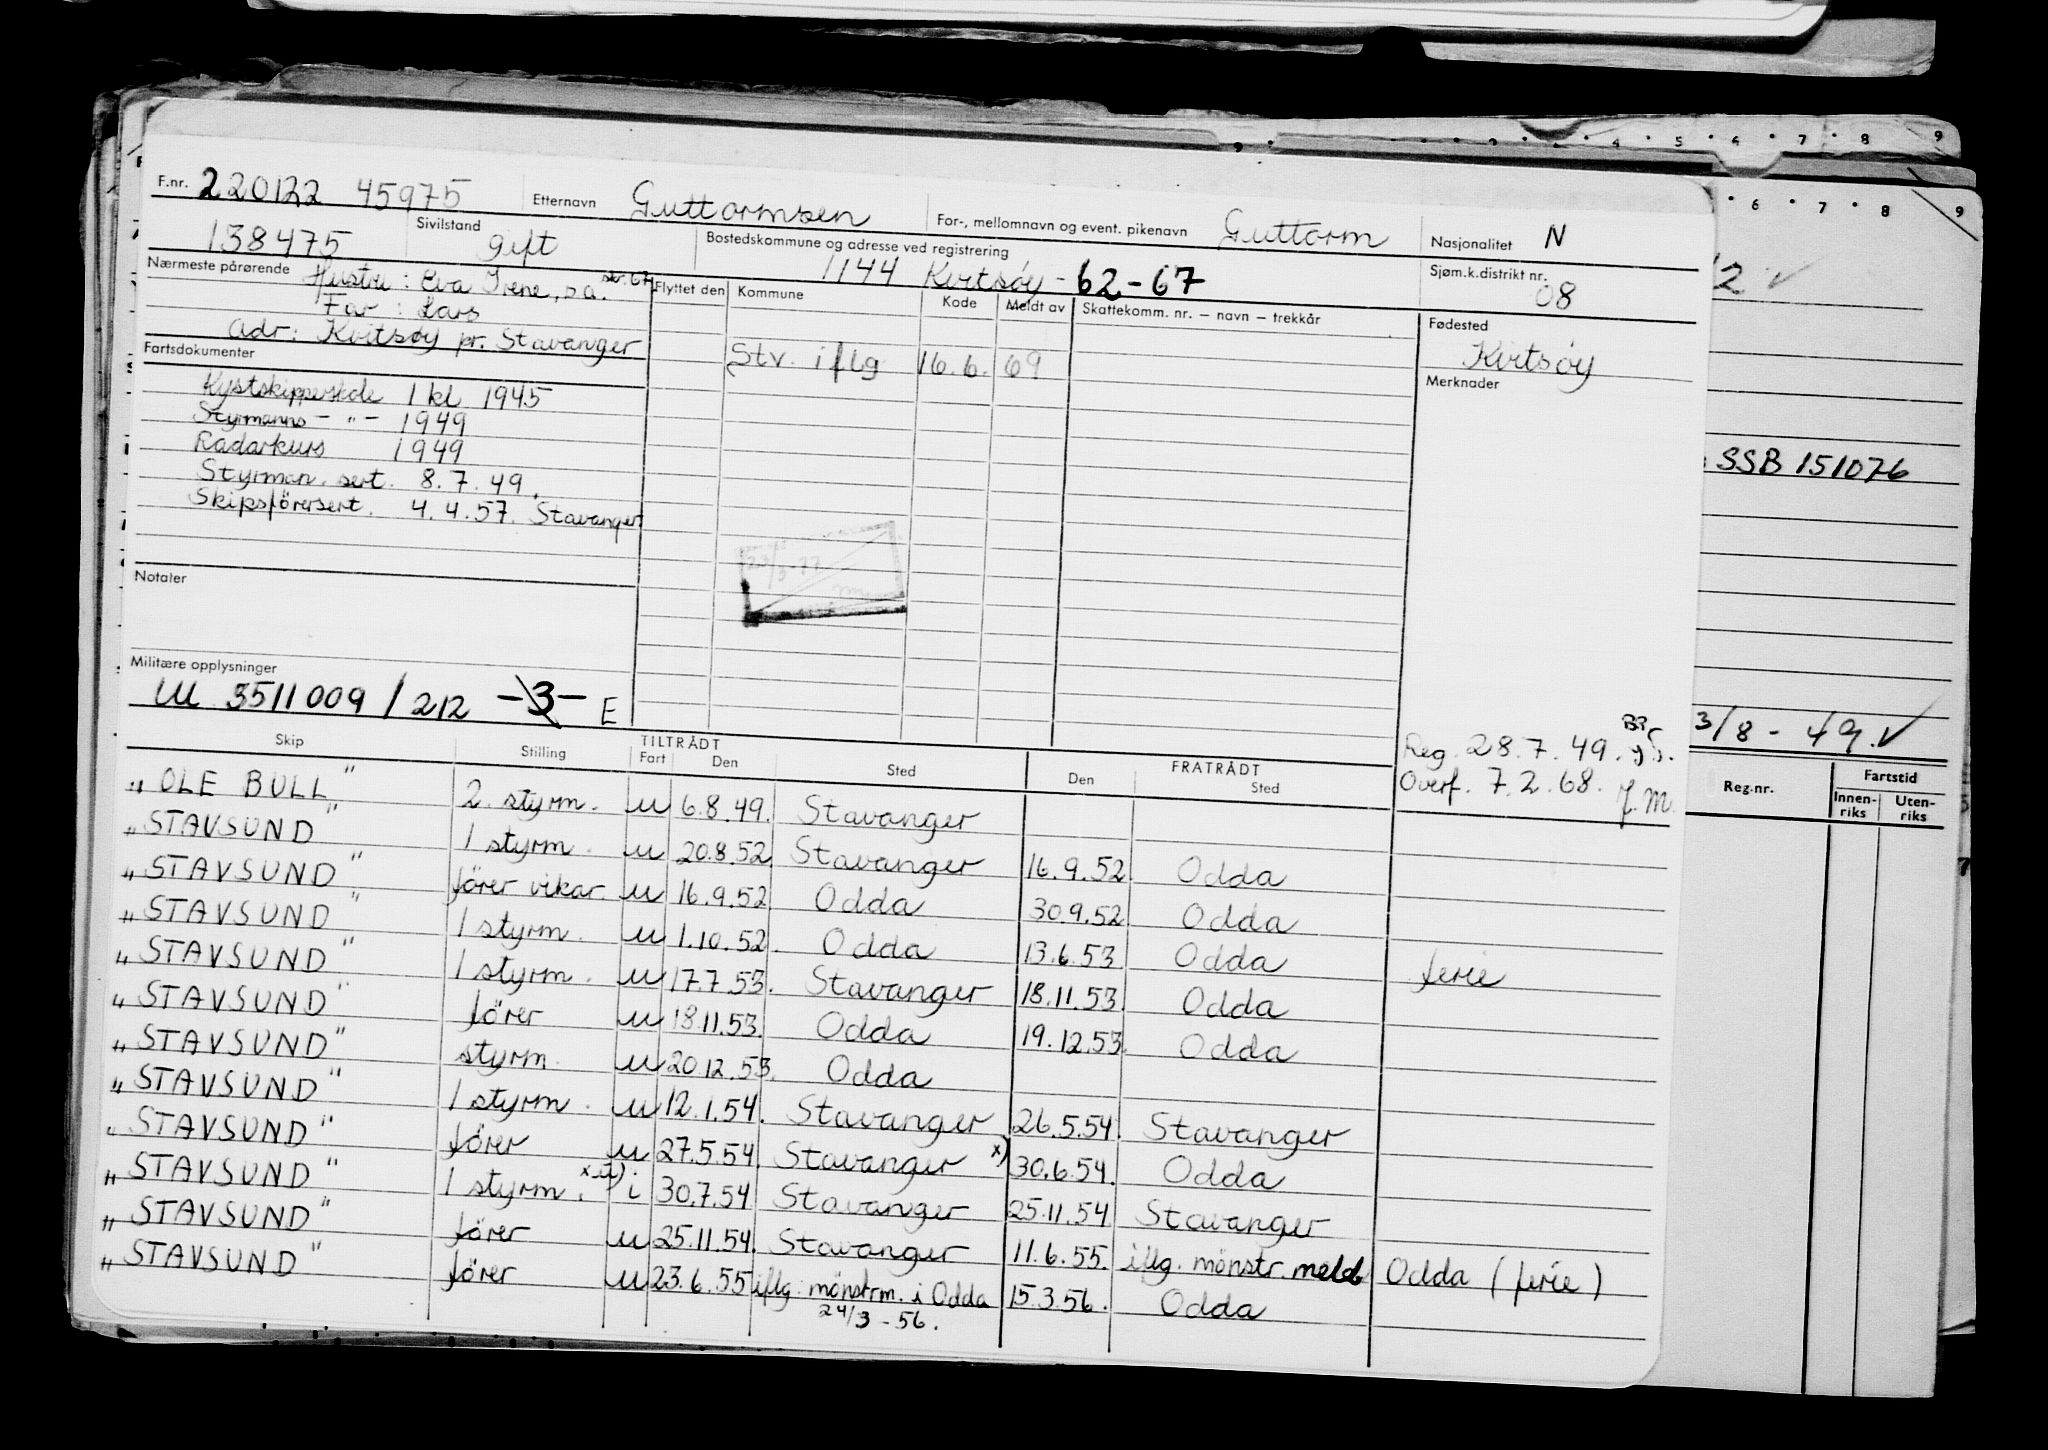 F.nr. 220122 45975 Etternavn Guttormsen For-, mellomnavn og event. pikenavn Guttorm Nasjonalitet N
138475 Sivilstand gift Bostedskommune og adresse ved registrering 1144 Kvitsøy - 62-67 Sjøm.k.distrikt nr. 08
Nærmeste pårørende Hustru : Eva Irene, s.a. str. 67
Far : Lars
adr: Kvitsøy pr. Stavanger
Flyttet den Kommune Kode Meldt av Skattekomm. nr. — navn — trekkår
Stv. iflg 16.6. 69
Fødested
Kvitsøy
Merknader
Fartsdokumenter
Kystskipperskole 1 kl 1945
Styrmanns - " - 1949
Radarkurs 1949
Styrman. sert. 8.7.49.
Skipsförersert. 4.4.57. Stavanger
23/3-77
Notater
Militære opplysninger
M 3511009 / 212 -3- E
Reg. 28.7.49.
Overf. 7.2.68. J.M.
Skip Stilling TILTRÅDT Fart Den Sted FRATRÅDT Den Sted
"OLE BULL" 2. styrm. u 6.8.49. Stavanger
"STAVSUND" 1 styrm. u 20.8.52. Stavanger 16.9.52. Odda
"STAVSUND" förer vikar. u 16.9.52. Odda 30.9.52. Odda
"STAVSUND" 1 styrm. u 1.10.52. Odda 13.6.53. Odda ferie
"STAVSUND" 1 styrm. u 17.7.53. Stavanger 18.11.53. Odda
"STAVSUND" förer u 18.11.53. Odda 19.12.53. Odda
"STAVSUND" styrm. u 20.12.53. Odda
"STAVSUND" 1 styrm. u 12.1.54. Stavanger 26.5.54. Stavanger
"STAVSUND" förer u 27.5.54. Stavanger x) 30.6.54. Odda
"STAVSUND" 1 styrm. x.u) i 30.7.54 Stavanger 25.11.54 Stavanger
"STAVSUND" förer u 25.11.54. Stavanger 11.6.55. iflg. mönstr. meld Odda (ferie)
"STAVSUND" förer u 23.6.55 iflg. mönstrm. i Odda 15.3.56. Odda
24/3-56.
4 5 6 7 8 9
6 7 8 9
/2 ✓
: SSB 151076
3/8 - 49. ✓
Reg.nr. Fartstid
Innen-riks Uten-riks